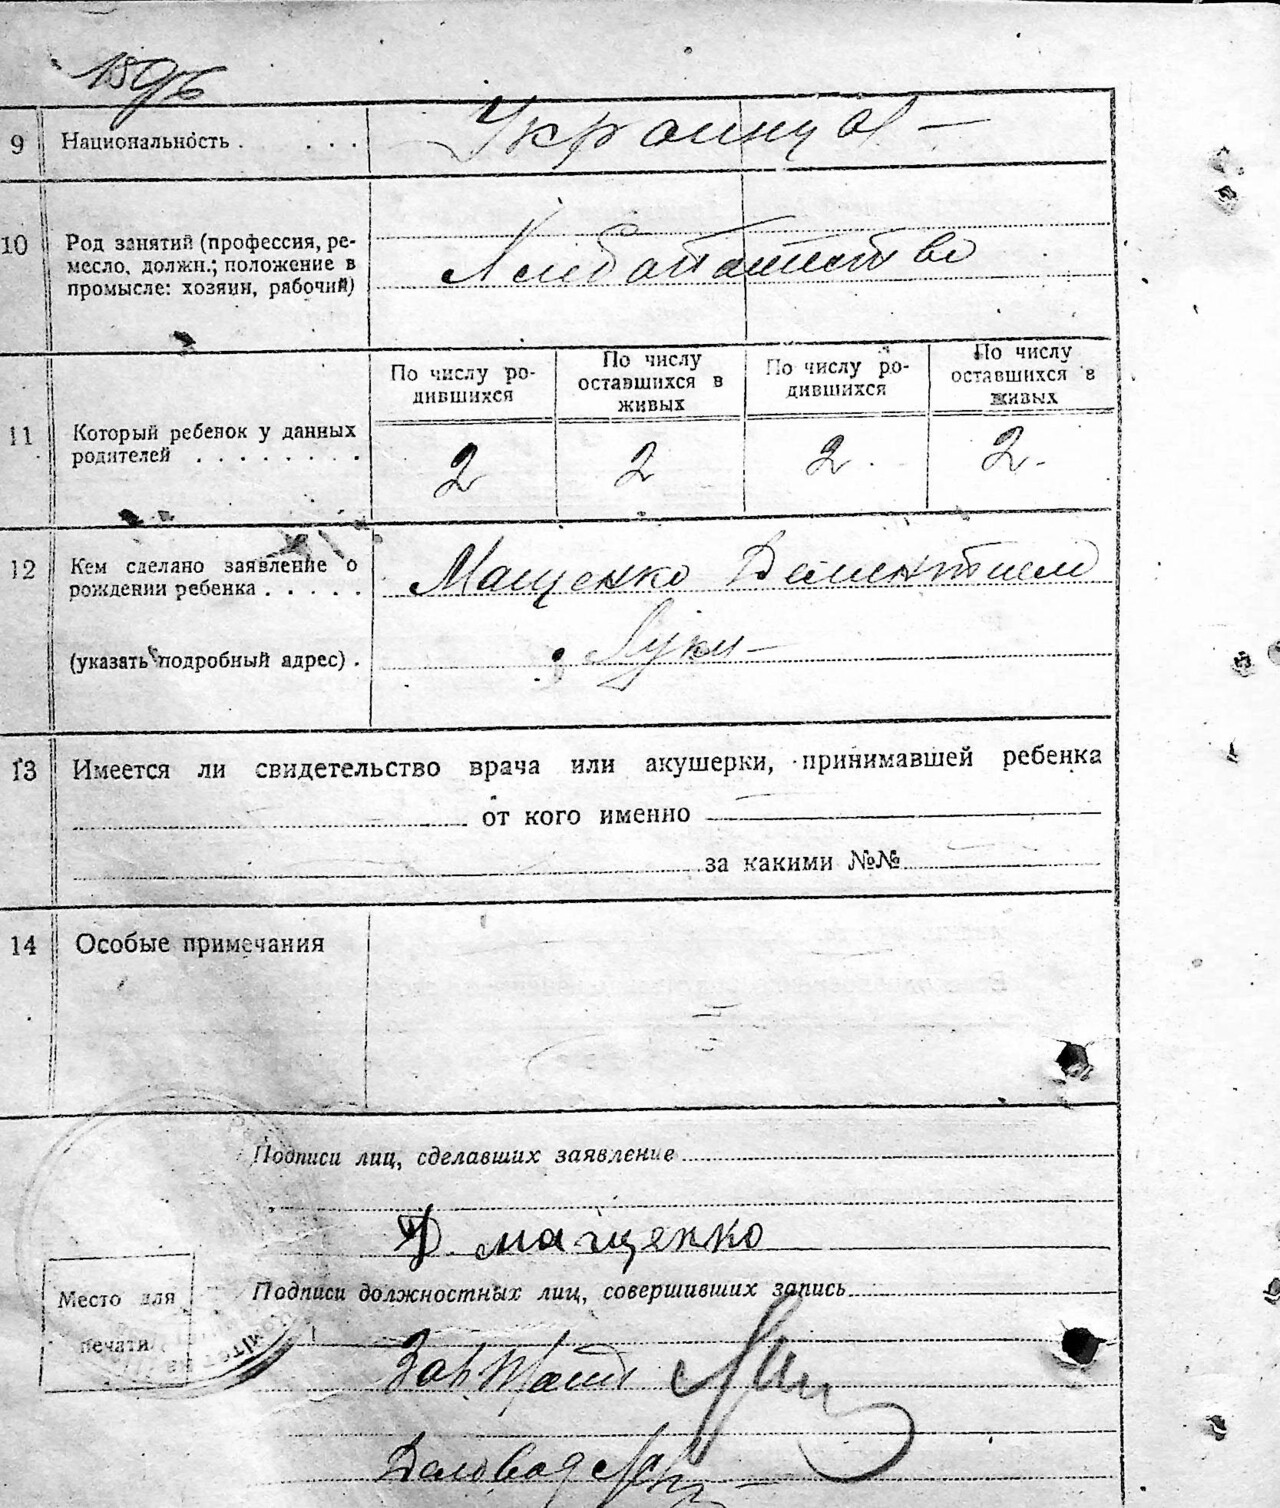 9 Национальность . . . . Украинца —
10 Род занятий (профессия, ре-
месло, должн.; положение в
промысле: хозяин, рабочий)
Хлебопашество
По числу ро-
дившихся
По числу
оставшихся в
живых
По числу ро-
дившихся
По числу
оставшихся в
живых
11 Который ребенок у данных
родителей . . . . . . . .
2 2 2. 2.
12 Кем сделано заявление о
рождении ребенка . . . . .
Мащенко Дементием
(указать подробный адрес) .
Луки —
13 Имеется ли свидетельство врача или акушерки, принимавшей ребенка
от кого именно
за какими №№
14 Особые примечания
Подписи лиц, сделавших заявление
Д мащенко
Подписи должностных лиц, совершивших запись
Место для
печати